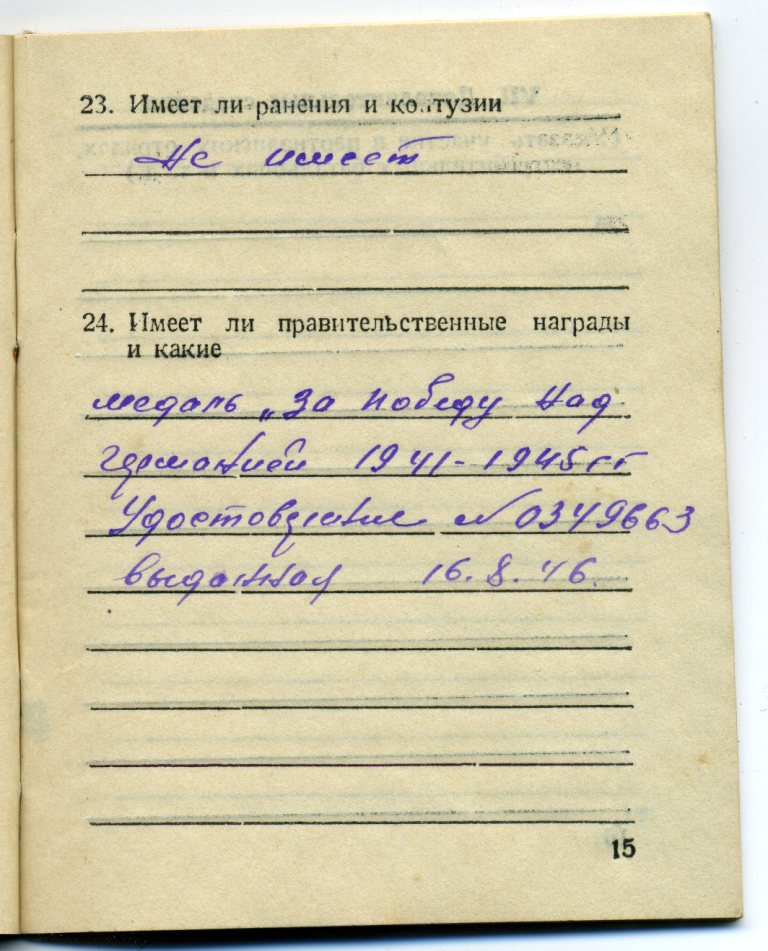 23. Имеет ли ранения и контузии
Не имеет
24. Имеет ли правительственные награды
и какие
медаль „За победу над
Германией 1941-1945гг
Удостоверение № 0349663
выданная 16.8.46.
15